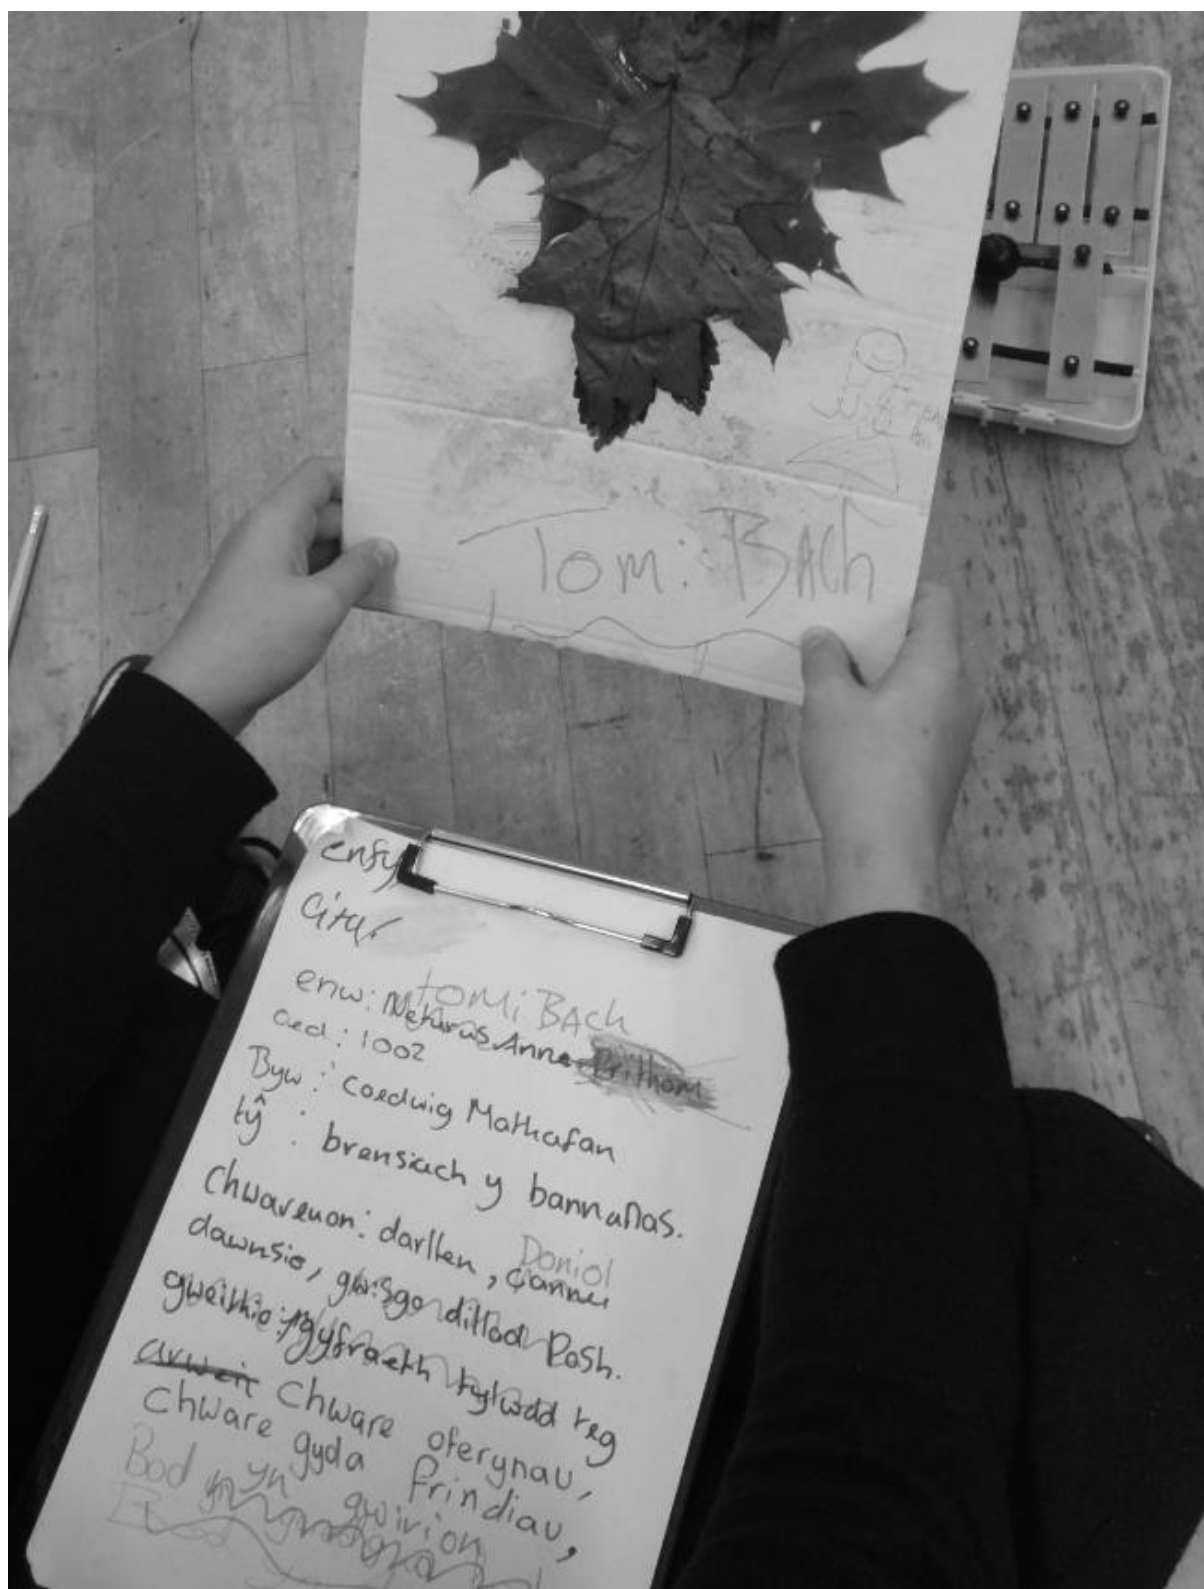 Tomi BACh
enw: tomi BACh
Neturus Anna Brithom
oed: 1002
Byw: coedwig Mathafan
tŷ: brensiach y bannanas.
Chwareuon: darllen, cannu
Doniol
dawnsio, gwisgo dillad Posh.
gweithio: gyfraeth tylwdd teg
arwein Chware oferynau,
Chware gyda frindiau,
Bod yn gwirion